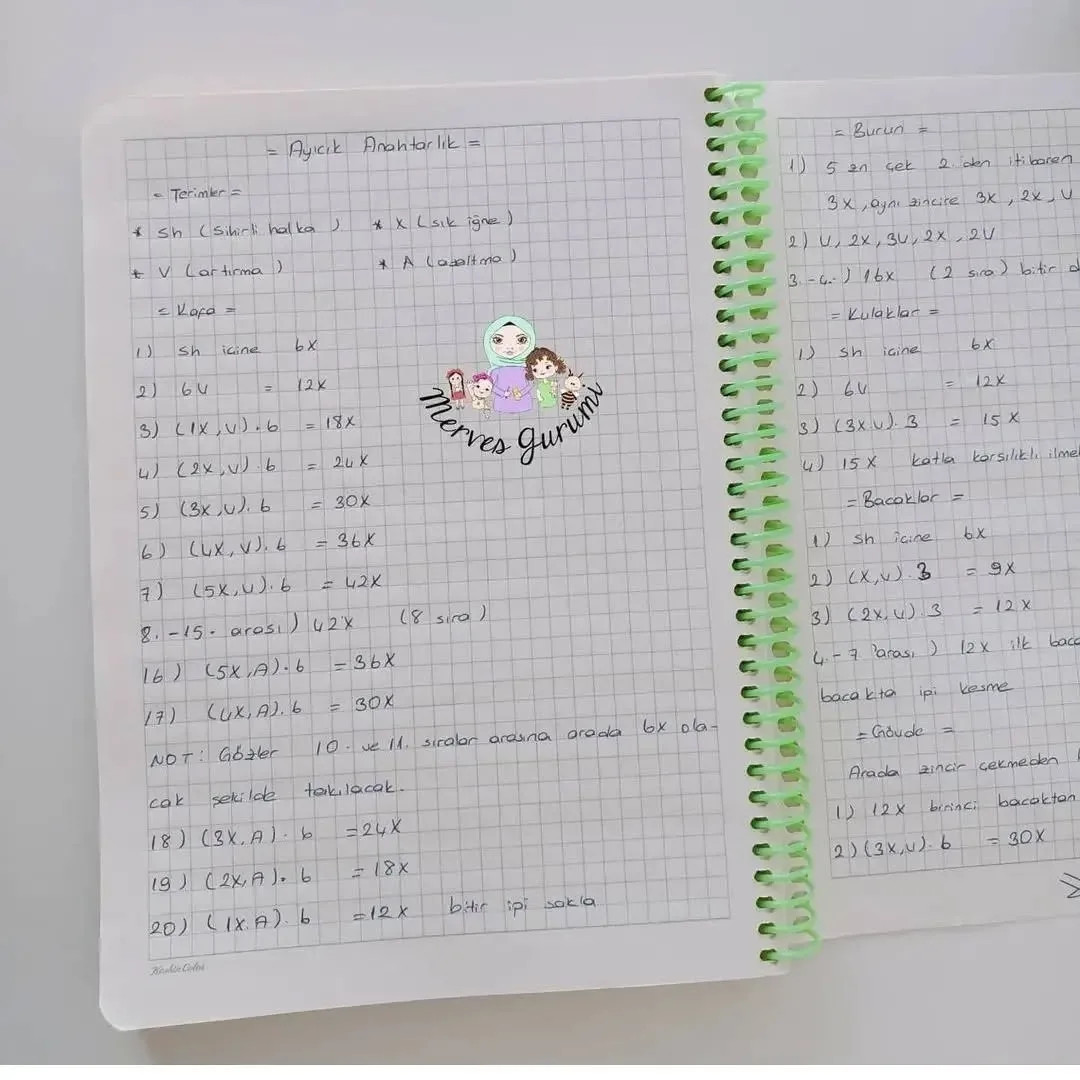 = Ayıcık Anahtarlık =
= Terimler =
* sh (sihirli halka) * X (sık iğne)
* V (artırma) * A (azaltma)
= Kafa =
1) sh icine 6x
2) 6V = 12x
3) (1x,V).6 = 18x
4) (2x,V).6 = 24x
5) (3x,V).6 = 30x
6) (4x,V).6 = 36x
7) (5x,V).6 = 42x
8.-15. arası) 42x (8 sıra)
16) (5x,A).6 = 36x
17) (4x,A).6 = 30x
NOT: Gözler 10. ve 11. sıralar arasına arada 6x ola-
cak sekilde takılacak.
18) (3x,A).6 = 24x
19) (2x,A).6 = 18x
20) (1x.A).6 = 12x bitir ipi sakla
Merves gurumi
Keskin Color
= Burun =
1) 5 zn çek 2. den itibaren
3x, aynı zincire 3x, 2x, V
2) V, 2x, 3V, 2x, 2V
3.-4.) 16x (2 sıra) bitir
= Kulaklar =
1) sh icine 6x
2) 6V = 12x
3) (3x,V).3 = 15x
4) 15x katla karsılıklı
= Bacaklar =
1) sh icine 6x
2) (x,V).3 = 9x
3) (2x,V).3 = 12x
4.-7 arası) 12x ilk
bacakta ipi kesme
= Gövde =
Arada zincir cekmeden
1) 12x birinci bacaktan
2) (3x,V).6 = 30x